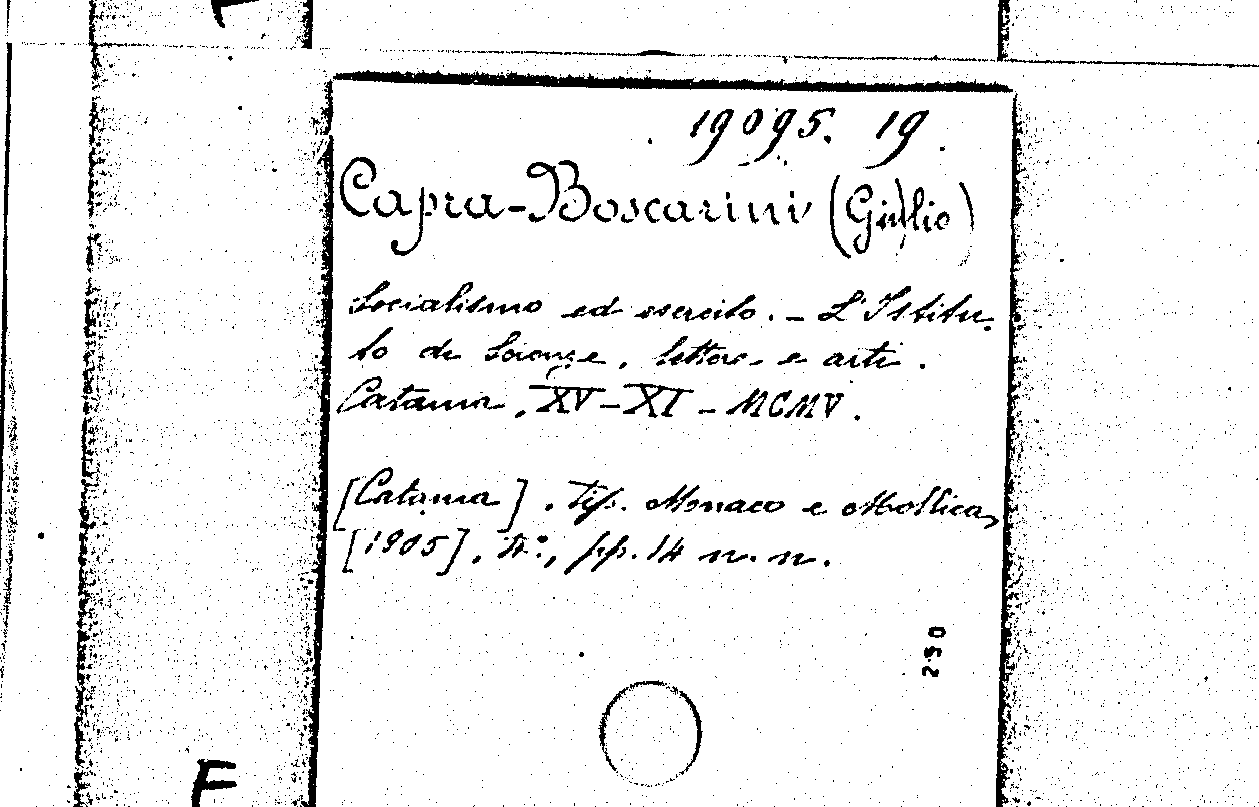 19095. 19.
Capra-Boscarini (Giulio)
Socialismo ed esercito. - L'Istitu-
to di Scienze, lettere e arti.
Catania, XV-XI-MCMV.
[Catania]. Tip. Monaco e Mollica,
[1905], 4°., pp. 14 n. n.
250
F